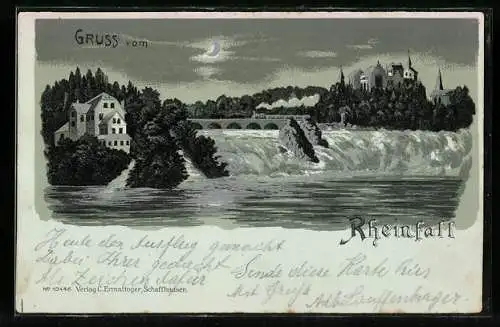 Gruss vom
Rheinfall
Heute den Ausflug gemacht
dabei Ihrer gedacht
Als Zeichen dafür
Sende diese Karte hier
Mit Gruß
Adb. Lauffenburger.
No 10446. Verlag C. Ermattinger, Schaffhausen.